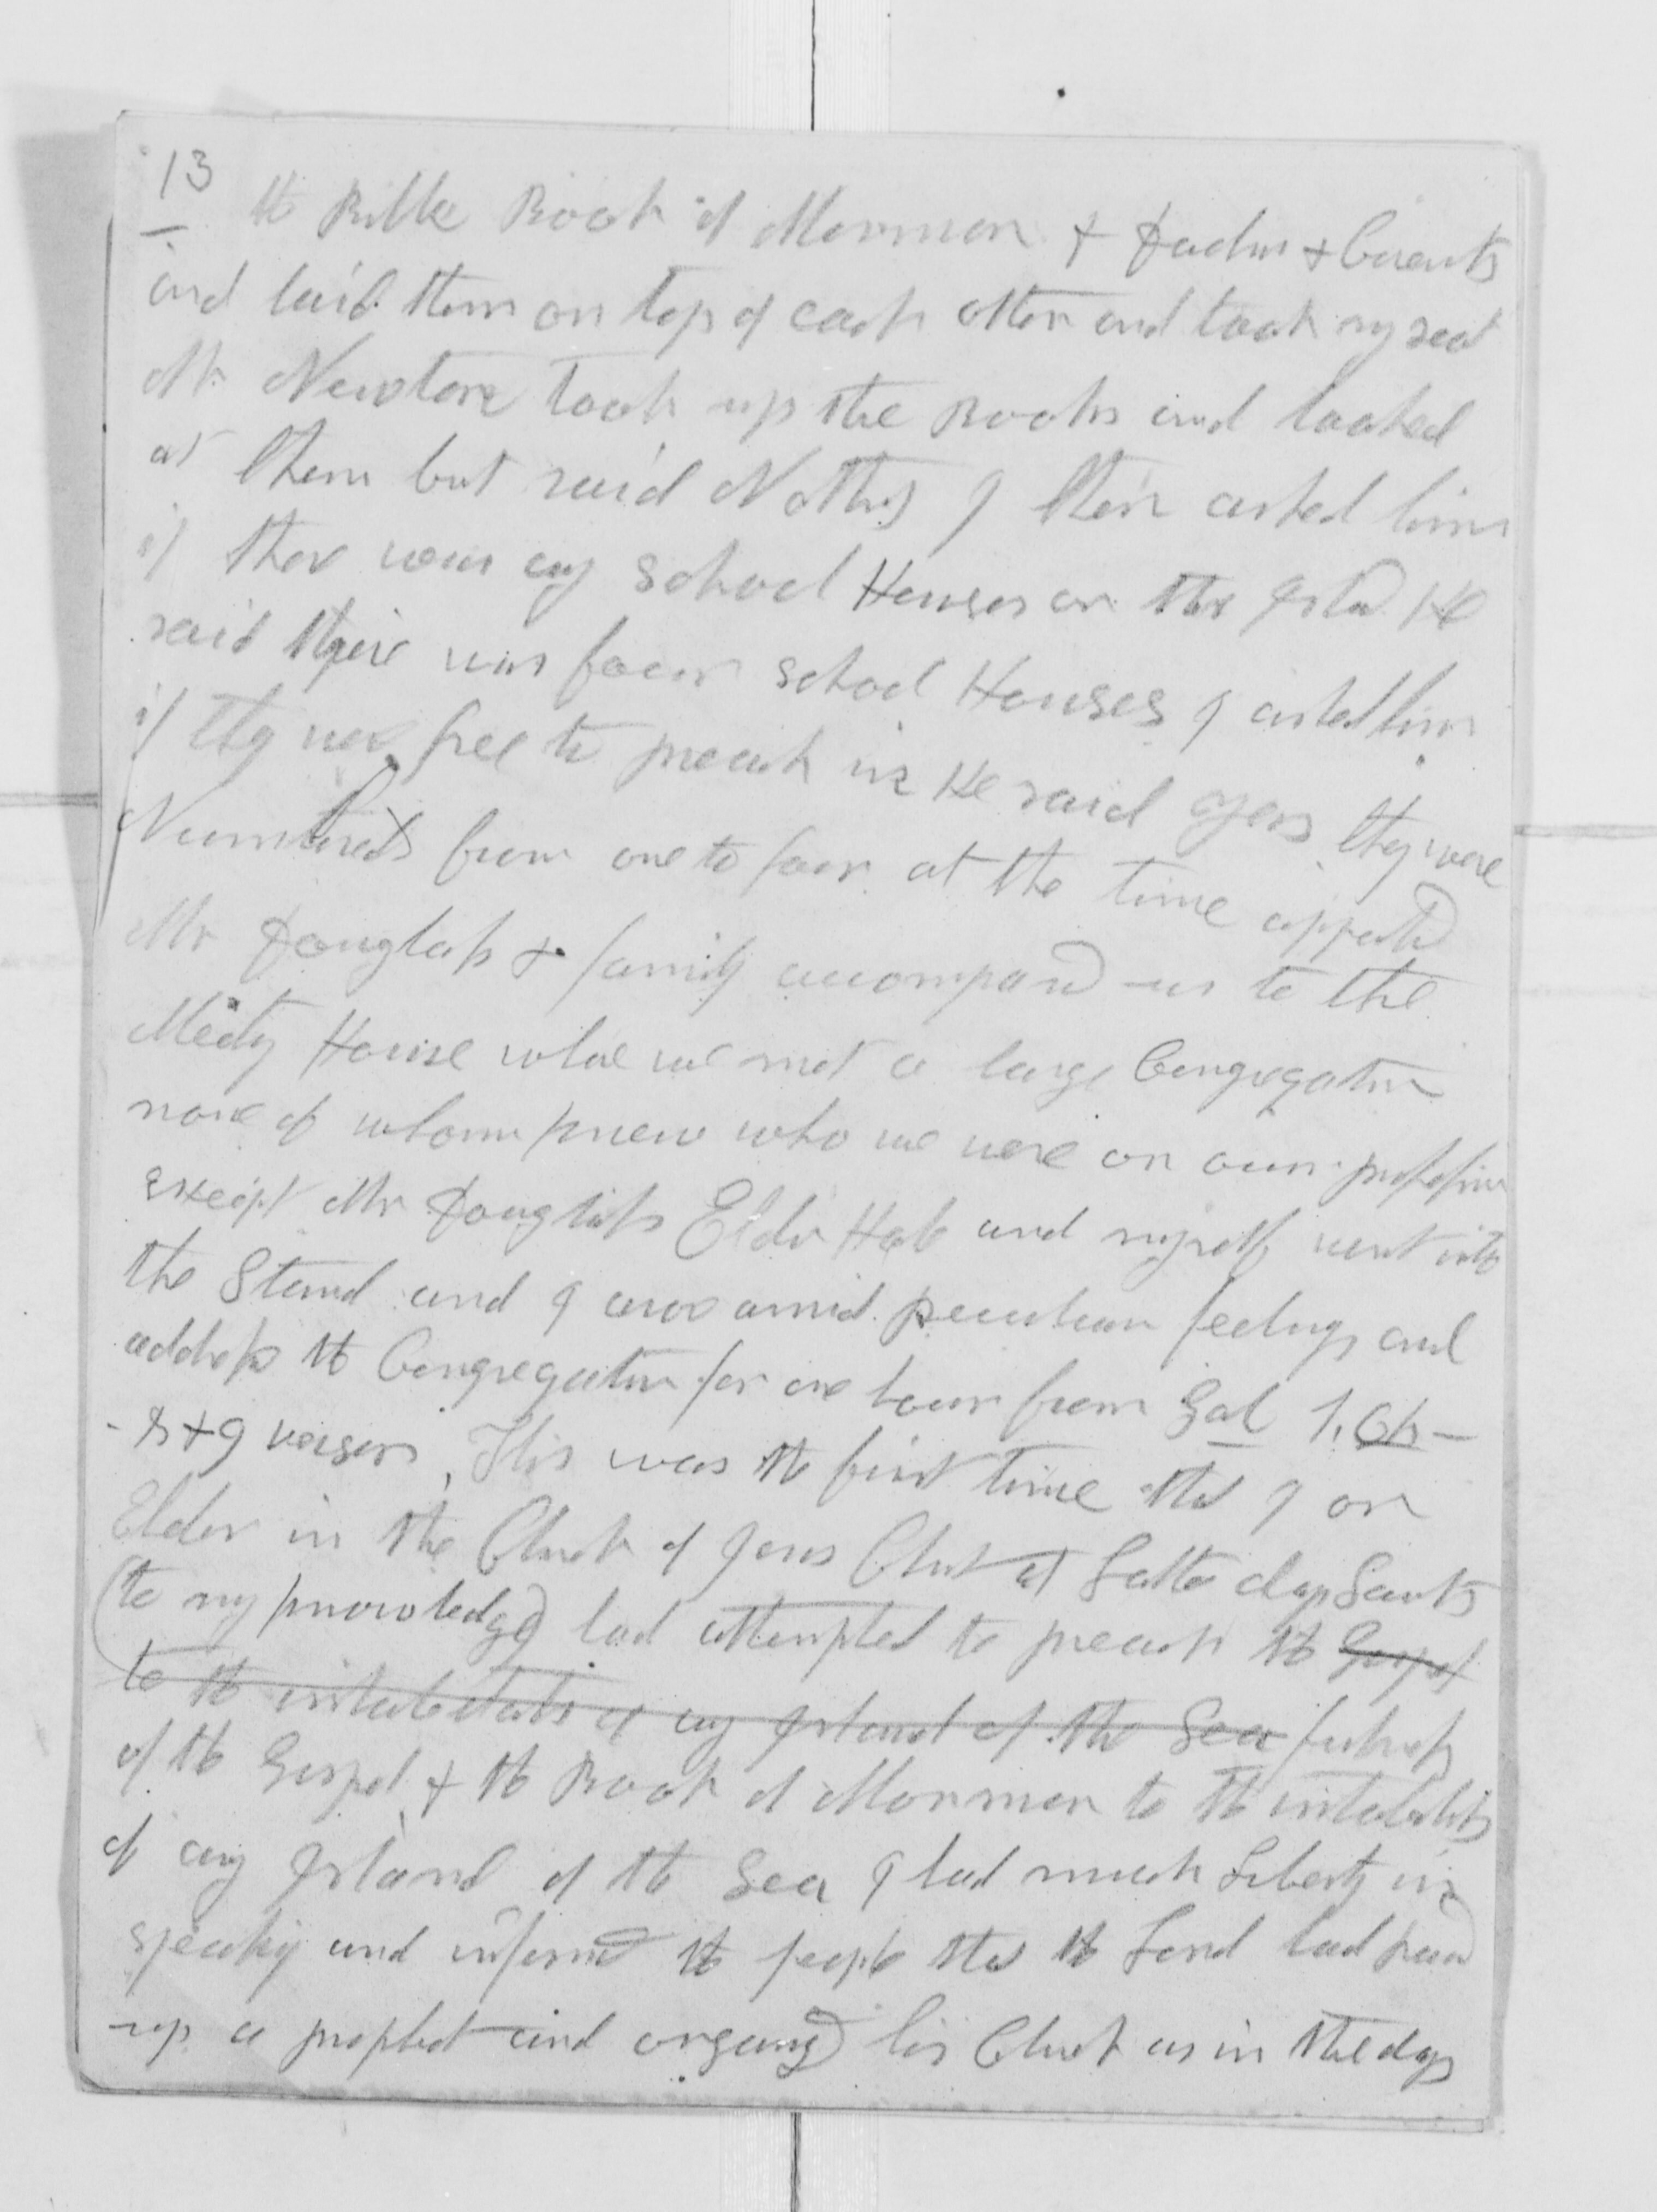 13
the Bible Book of Mormon & Doctrin & Covenants
and laid them on top of each other and took my seat
Mr Newton took up the Books and looked
at them but said Nothing I then asked him
if ther was any School Houses on the Island He
said there was four school Houses I asked him
if they wer free to preach in He said yes they were
Numbered from one to four at the time appointed
Mr Douglass & family accompand us to the
Meeting House whare we met a large Congregation
none of whom knew who we were or our profession
except Mr Douglass Elder Hale and myself went into
the Stand and I arose amid peculiar feelings and
address the Congregation for one hour from Gal 1. Ch-
- 8 & 9 verses, This was the first time that I or
Elder in the Church of Jesus Christ of Latter day Saints
(to my knowledge) had attempted to preach the Gospel
to the inhabitants of any Island of the Sea fulness
of the Gospel & the Book of Mormon to the inhabitants
of any Island of the Sea I had much Liberty in
speaking and informed the people that the Lord had raised
up a prophet and organized his Church as in the days